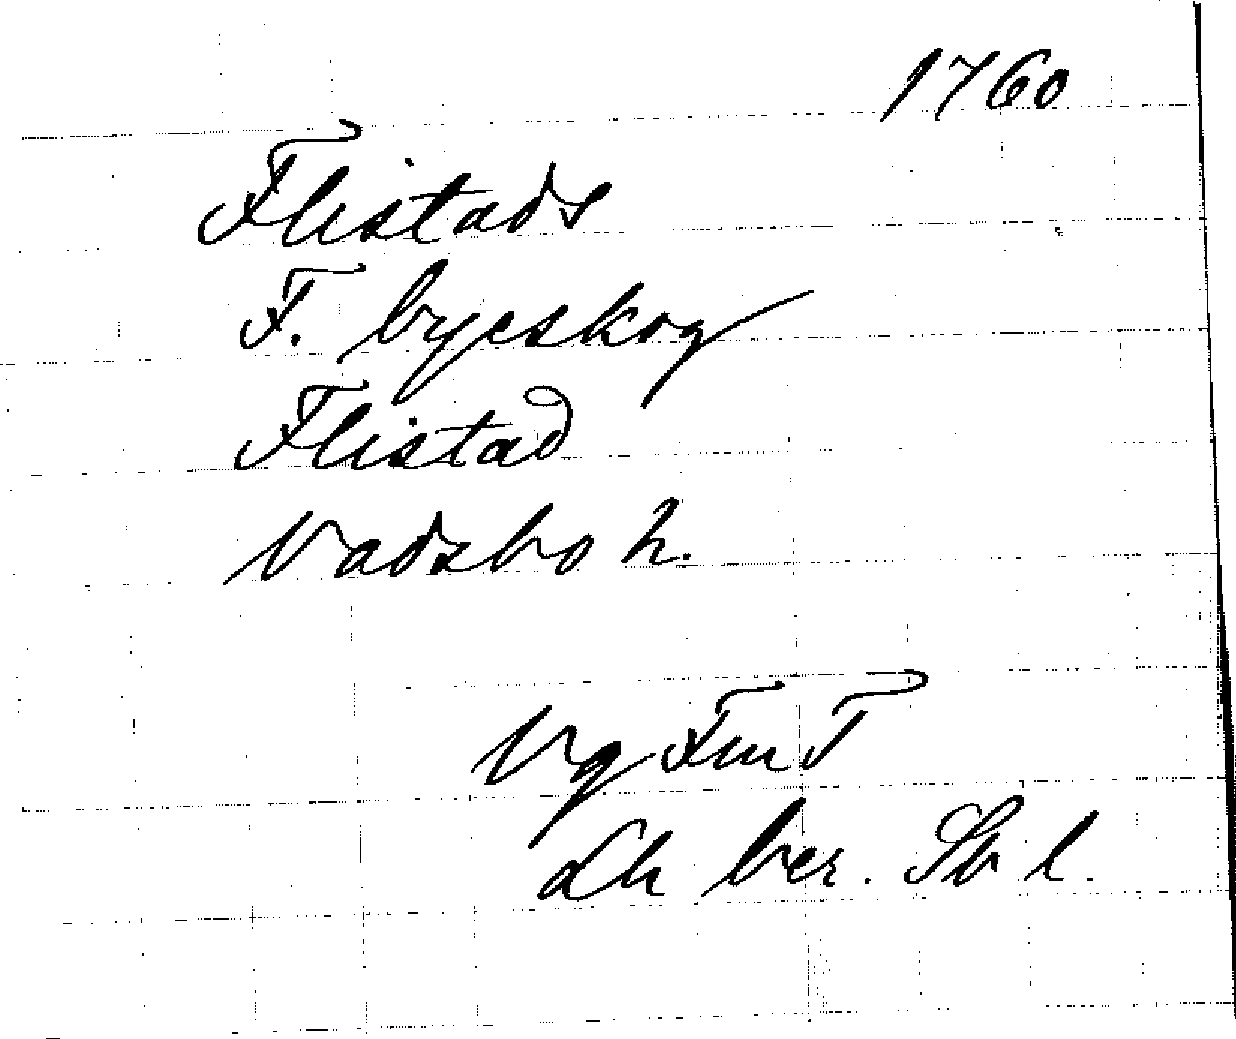 1760
Flistads
F. byeskog
Flistad
Vadsbo h.
Vg Fm T
Lh ber. Sb l.